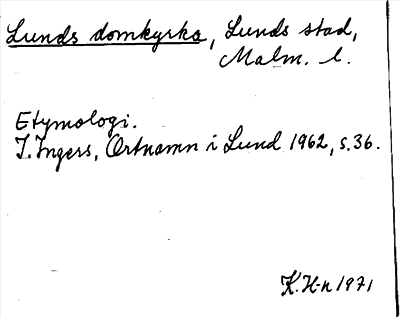 Lunds domkyrka, Lunds stad,
Malm. l.
Etymologi.
I. Ingers, Ortnamn i Lund 1962, s. 36.
K. H-n 1971